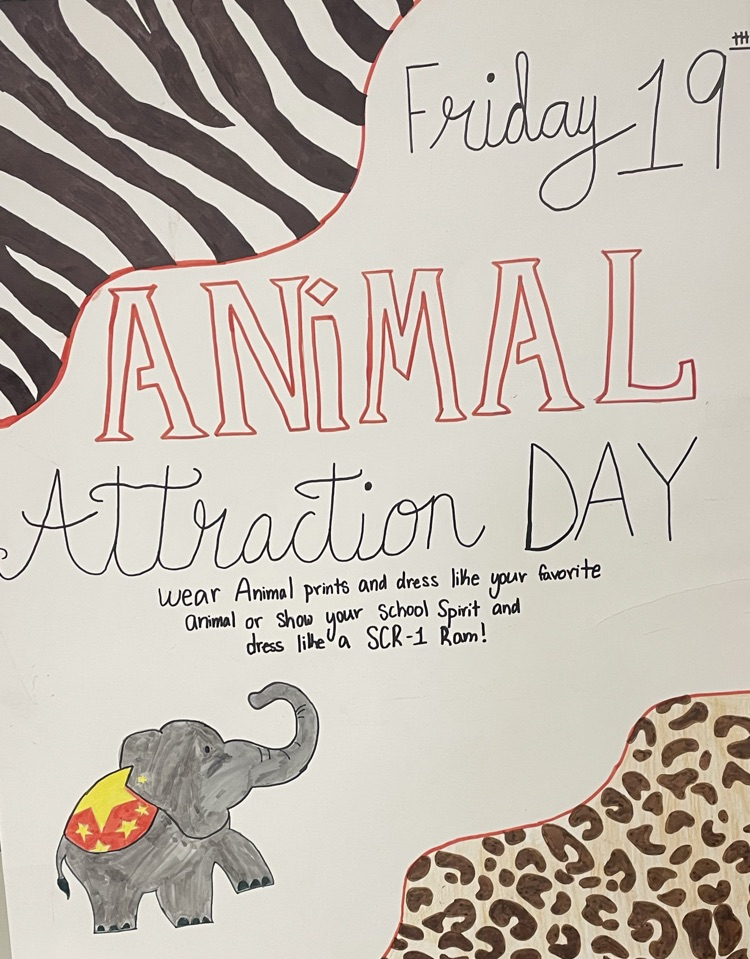 Friday 19th
ANiMAL
Attraction DAY
Wear Animal prints and dress like your favorite
animal or Show your School Spirit and
dress like a SCR-1 Ram!